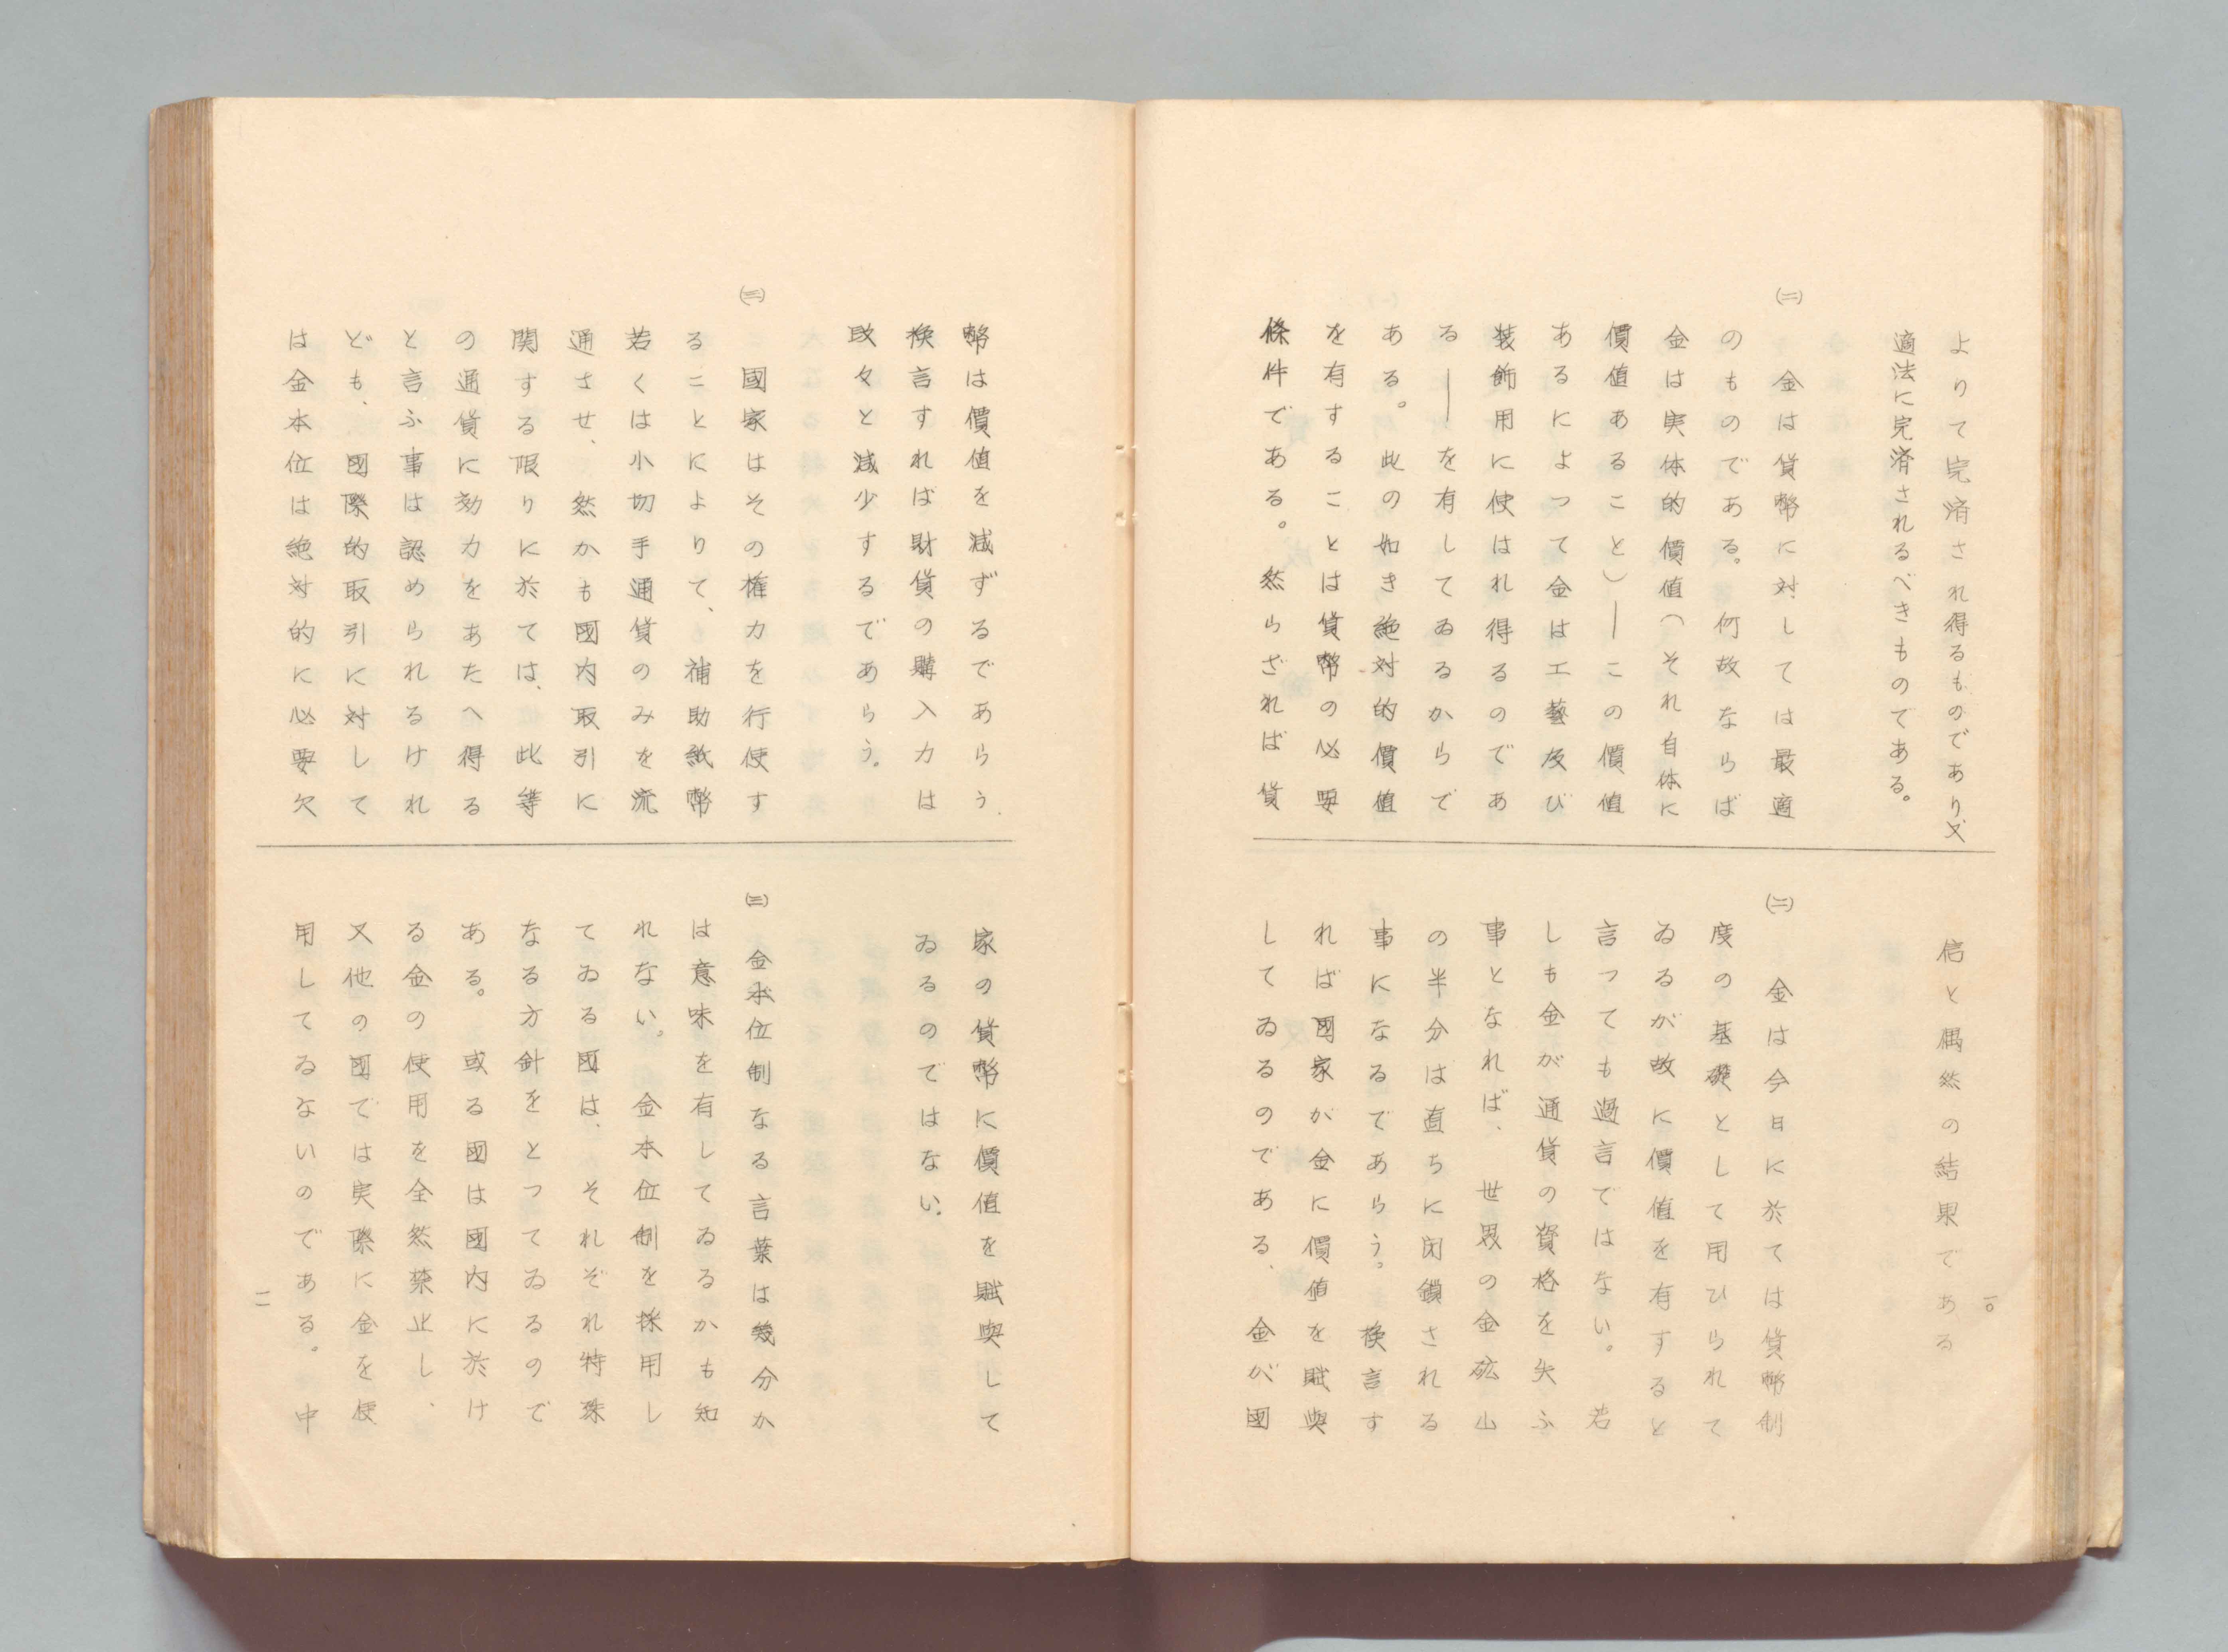 よりて完済され得るものであり又
適法に完済されるべきものである。
(二)
金は貨幣に対しては最適
のものである。何故ならば
金は実体的價値（それ自体に
價値あること）―この價値
あるによつて金は工藝及び
装飾用に使はれ得るのであ
る―を有してゐるからで
ある。此の如き絶対的價値
を有することは貨幣の必要
條件である。然らざれば貨
信と偶然の結果である
(二)
金は今日に於ては貨幣制
度の基礎として用ひられて
ゐるが故に價値を有すると
言つても過言ではない。若
しも金が通貨の資格を失ふ
事となれば、世界の金砿山
の半分は直ちに閉鎖される
事になるであらう。換言す
れば國家が金に價値を賦與
してゐるのである、金が國
一〇
幣は價値を減ずるであらう。
換言すれば財貨の購入力は
段々と減少するであらう。
(三)
國家はその権力を行使す
ることによりて、補助紙幣
若くは小切手通貨のみを流
通させ、然かも國内取引に
関する限りに於ては、此等
の通貨に効力をあたへ得る
と言ふ事は認められるけれ
ども、國際的取引に対して
は金本位は絶対的に必要欠
家の貨幣に價値を賦與して
ゐるのではない。
(三)
金本位制なる言葉は幾分か
は意味を有してゐるかも知
れない。金本位制を採用し
てゐる國は、それぞれ特殊
なる方針をとつてゐるので
ある。或る國は國内に於け
る金の使用を全然禁止し、
又他の國では実際に金を使
用してゐないのである。中
一一